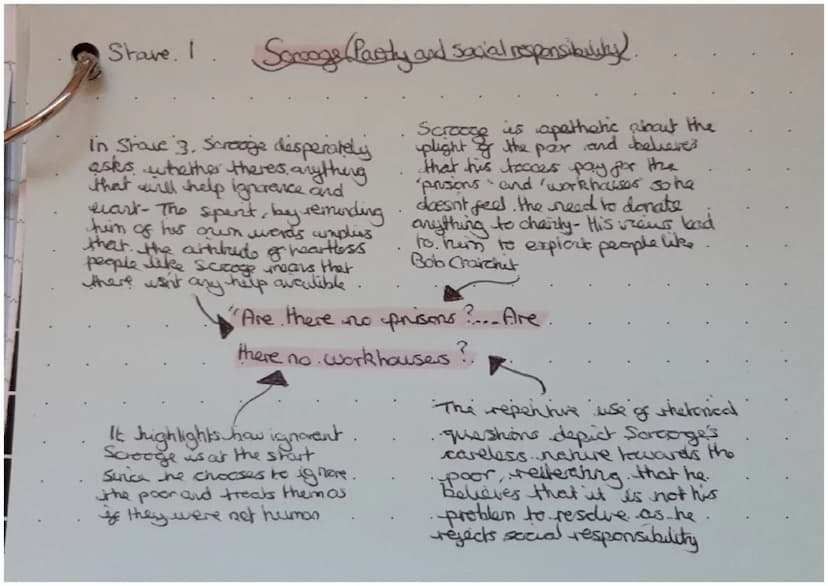 Stave. 1 Scrooge (Poverty and social responsibility)
In Stave 3, Scrooge desperately
asks whether theres anything
that will help ignorance and
want- The spirit, by reminding
him of his own words implies
that the attitude of heartless
people like Scrooge means that
there isn't any help availible
Scrooge is apathetic about the
plight of the poor and believes
that his taxes pay for the
'prisons' and 'workhouses' so he
doesnt feel the need to donate
anything to charity- His views lead
to him to exploit people like
Bob Cratchit
"Are there no prisons?...Are
there no workhousers?
It highlights how ignorant
Scrooge is at the start
since he chooses to ignore
the poor and treats them as
if they were not human
The repetitive use of rhetorical
questions depict Scrooge's
careless nature towards the
poor, reiterating that he
believes that it is not his
problem to resolve as he
rejects social responsibility